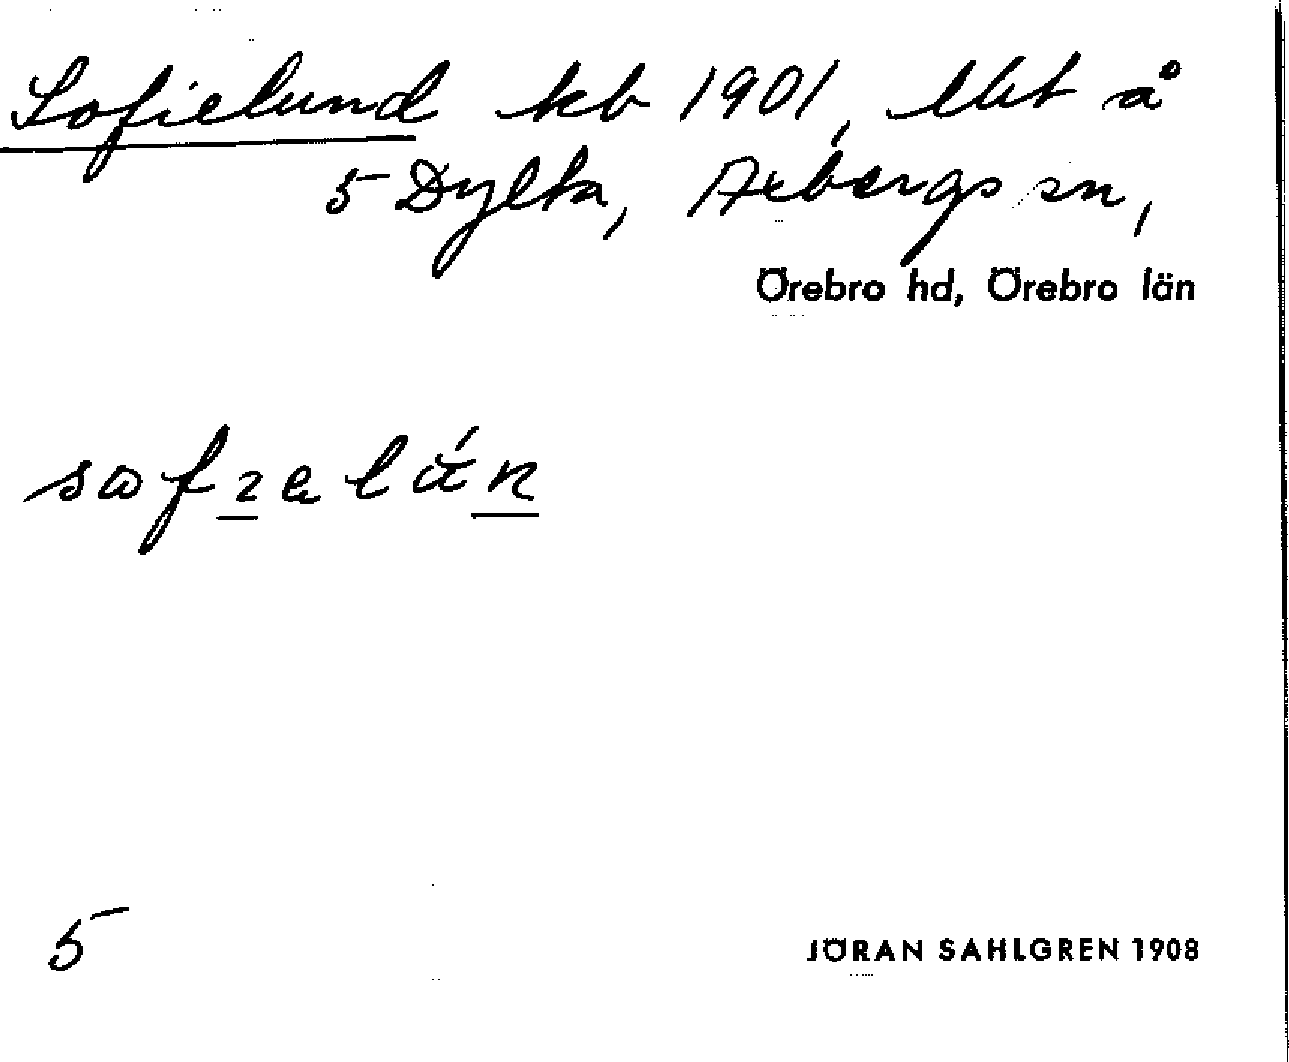 Sofielund kb 1901, lht å
5 Dylta, Axbergs sn,
Örebro hd, Örebro län
sofzelún
5
JÖRAN SAHLGREN 1908